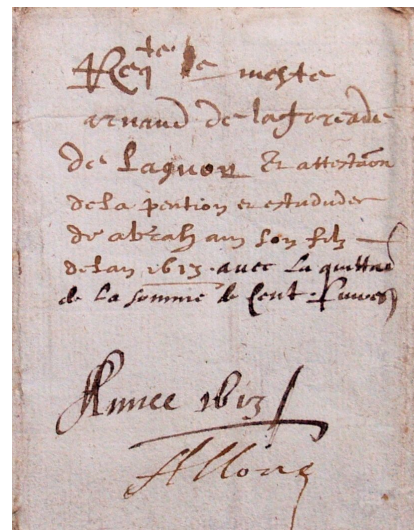 Req^te de meste
arnaud de laforcade
de Laguor Et attestaon
de la pention et estududes
de abraham son filz
de lan 1613. avec la quittance
de la somme de Cent. livres
Annee 1613
Allong